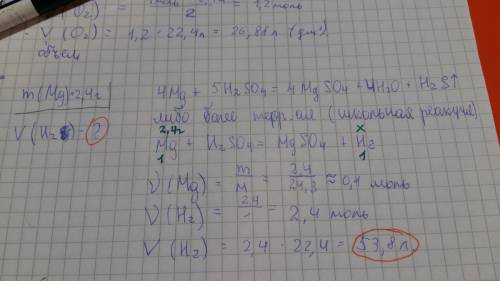 V(O₂) = 1,2 · 22,4л = 26,88л (дм³)
объем
m(Mg)=2,4г
4Mg + 5H₂SO₄ = 4MgSO₄ + 4H₂O + H₂S↑
V(H₂) - ?
либо более (школьная реакция)
2,4г x
Mg + H₂SO₄ = MgSO₄ + H₂
1 1
ν(Mg) = m/M = 2,4/24,3 ≈ 0,1 моль
ν(H₂) = 2,4/1 = 2,4 моль
V(H₂) = 2,4 · 22,4 = 53,8л